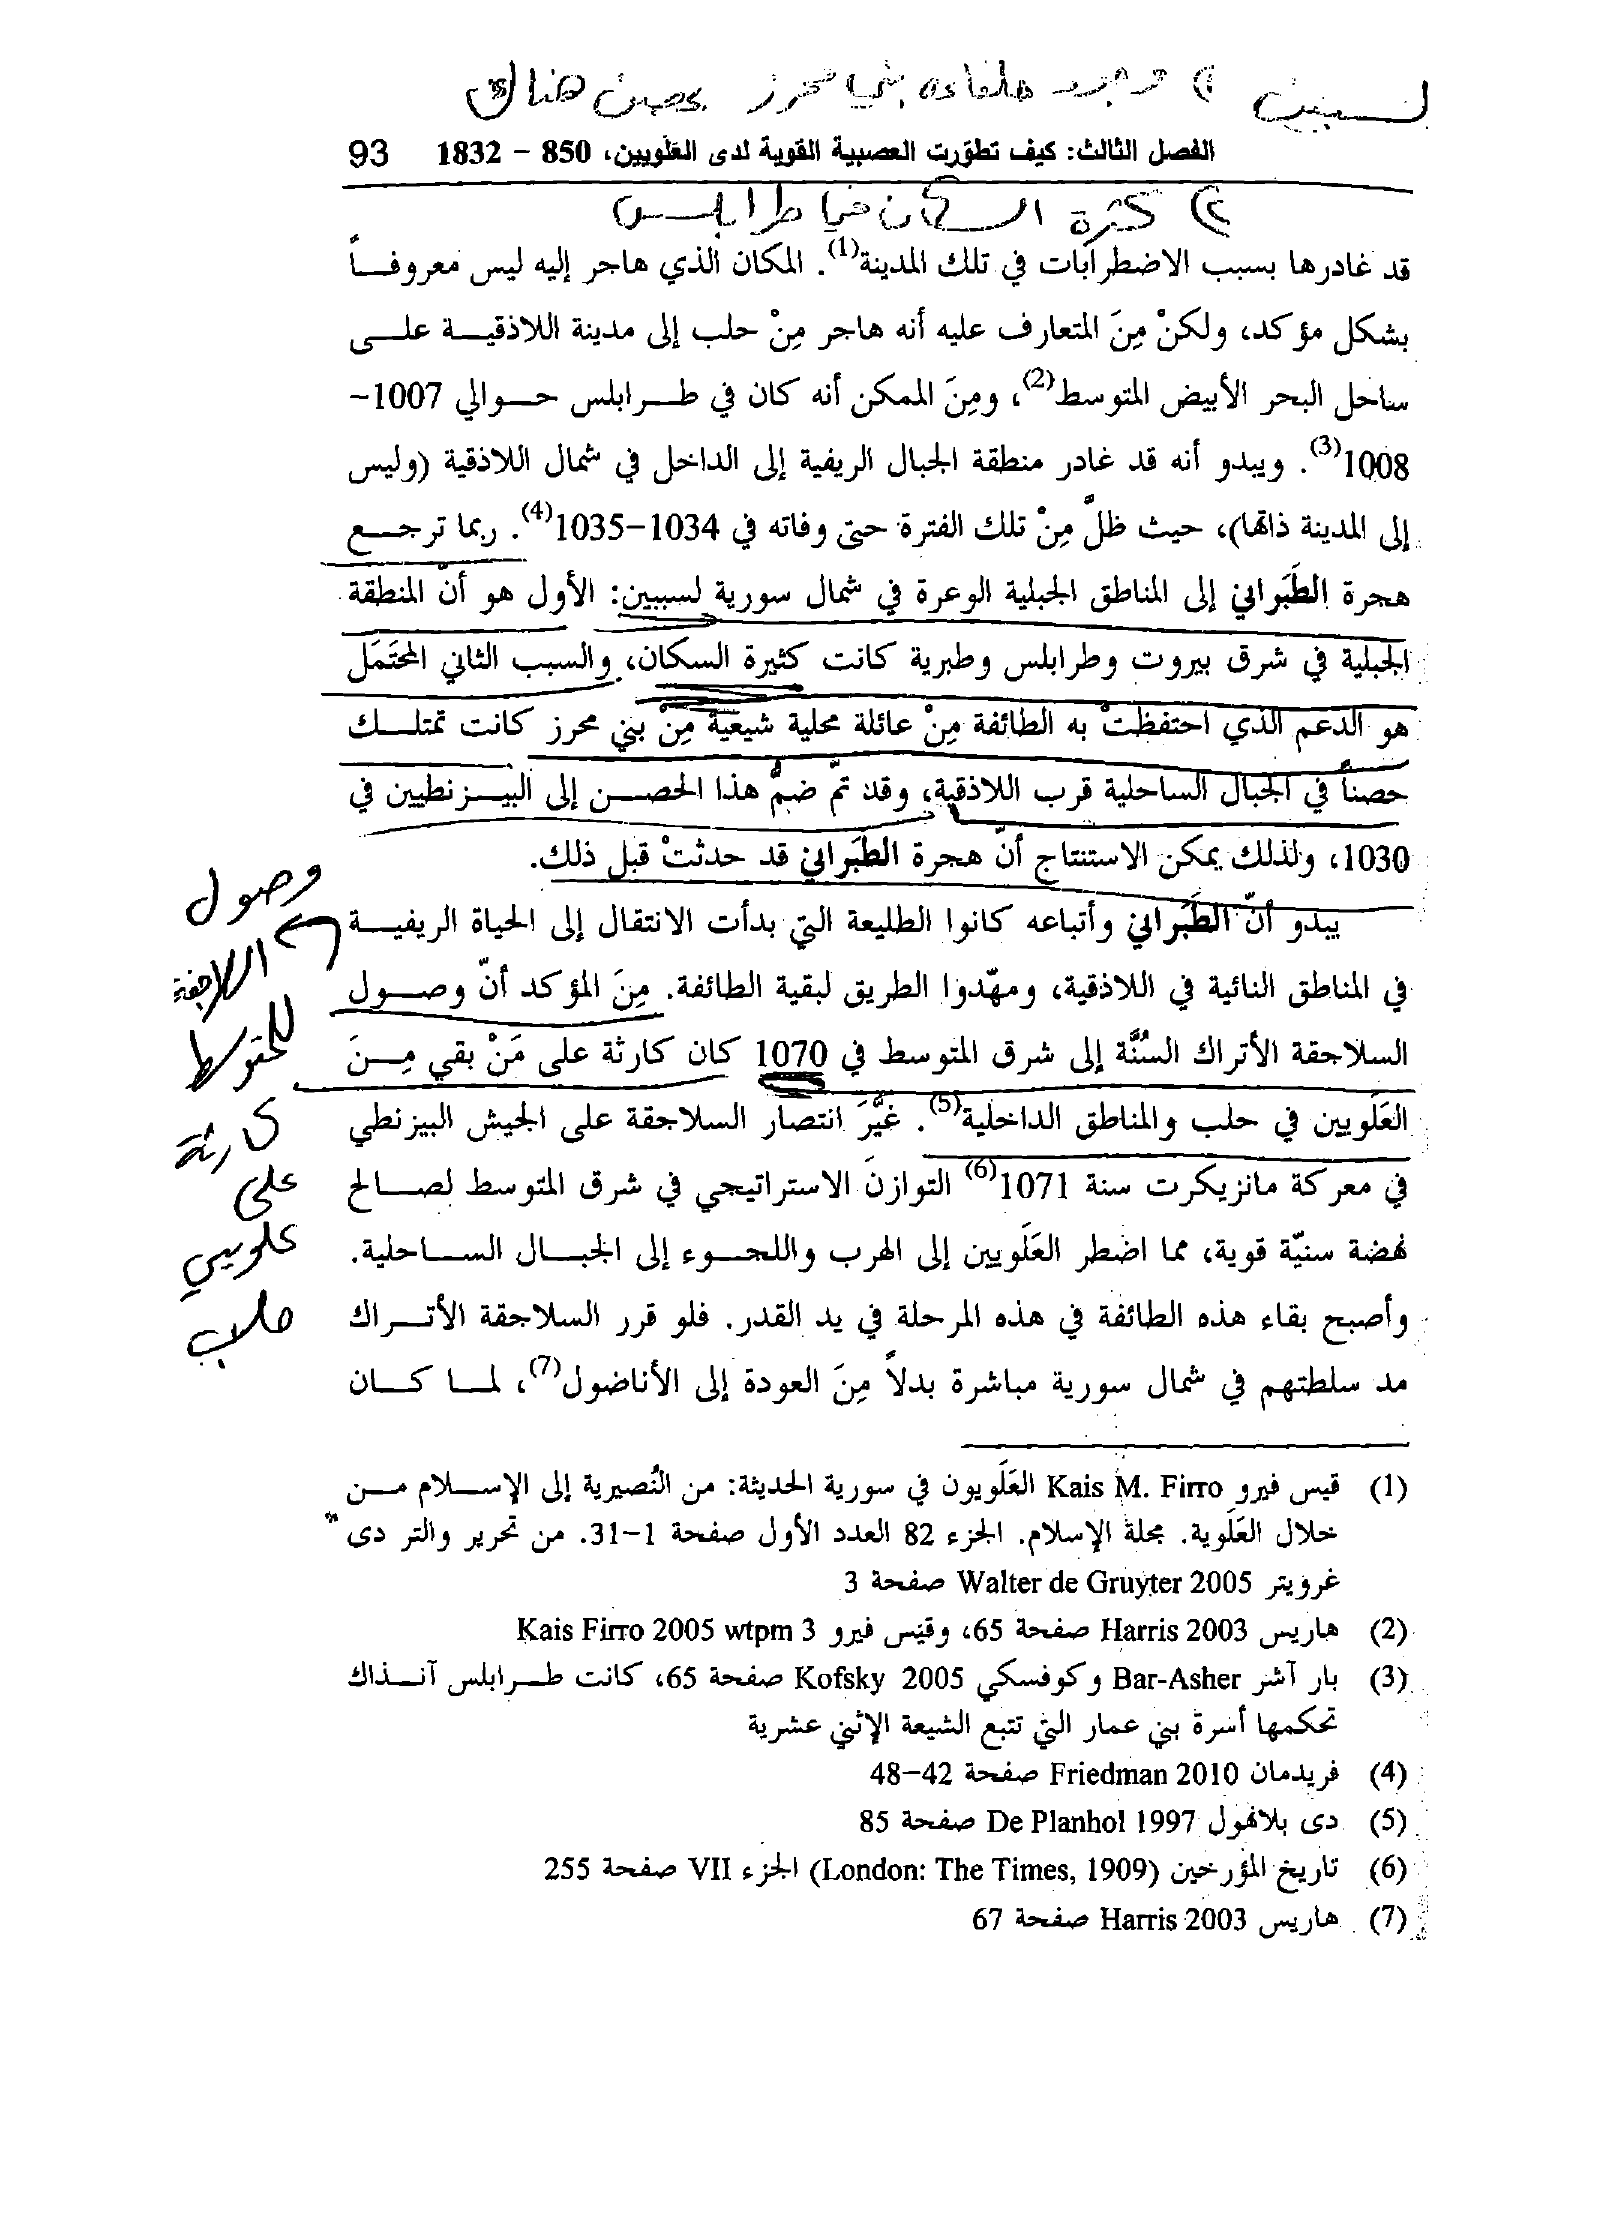 لسببين ١) وجود حلفاءه بني محرز بحصن هناك
الفصل الثالث: كيف تطوّرت العصبية القوية لدى العَلَويين، 850 – 1832 93
٢) كثرة السكان في طرابلس
قد غادرها بسبب الاضطرابات في تلك المدينة(1). المكان الذي هاجر إليه ليس معروفاً
بشكل مؤكد، ولكنْ مِنَ المتعارف عليه أنه هاجر مِنْ حلب إلى مدينة اللاذقية على
ساحل البحر الأبيض المتوسط(2)، ومِنَ الممكن أنه كان في طرابلس حوالي 1007-
1008(3). ويبدو أنه قد غادر منطقة الجبال الريفية إلى الداخل في شمال اللاذقية (وليس
إلى المدينة ذاتها)، حيث ظلّ مِنْ تلك الفترة حتى وفاته في 1034-1035(4). ربما ترجع
هجرة الطَبَراني إلى المناطق الجبلية الوعرة في شمال سورية لسببين: الأول هو أنّ المنطقة
الجبلية في شرق بيروت وطرابلس وطبرية كانت كثيرة السكان، والسبب الثاني المحتَمَل
هو الدعم الذي احتفظتْ به الطائفة مِنْ عائلة محلية شيعيّة مِنْ بني محرز كانت تمتلك
حصناً في الجبال الساحلية قرب اللاذقية، وقد تمّ ضمُّ هذا الحصن إلى البيزنطيين في
1030، ولذلك يمكن الاستنتاج أنّ هجرة الطَبَراني قد حدثتْ قبل ذلك.
يبدو أنّ الطَبَراني وأتباعه كانوا الطليعة التي بدأت الانتقال إلى الحياة الريفية
في المناطق النائية في اللاذقية، ومهّدوا الطريق لبقية الطائفة. مِنَ المؤكد أنّ وصول
السلاجقة الأتراك السُنَّة إلى شرق المتوسط في 1070 كان كارثة على مَنْ بقي مِنَ
العَلَويين في حلب والمناطق الداخلية(5). غيَّرَ انتصار السلاجقة على الجيش البيزنطي
في معركة مانزيكرت سنة 1071(6) التوازنَ الاستراتيجي في شرق المتوسط لصالح
نهضة سنيّة قوية، مما اضطر العَلَويين إلى الهرب واللجوء إلى الجبال الساحلية.
وأصبح بقاء هذه الطائفة في هذه المرحلة في يد القدر. فلو قرر السلاجقة الأتراك
مد سلطتهم في شمال سورية مباشرة بدلاً مِنَ العودة إلى الأناضول(7)، لما كان
وصول
السلاجقة
للمتوسط
كارثة
على
علويي
حلب
(1) قيس فيرو Kais M. Firro العَلَويون في سورية الحديثة: من النُصيرية إلى الإسلام من
خلال العَلَوية. مجلة الإسلام. الجزء 82 العدد الأول صفحة 1-31. من تحرير والتر دى
غرويتر Walter de Gruyter 2005 صفحة 3
(2) هاريس Harris 2003 صفحة 65، وقيس فيرو Kais Firro 2005 wtpm 3
(3) بار آشر Bar-Asher وكوفسكي Kofsky 2005 صفحة 65، كانت طرابلس آنذاك
تحكمها أسرة بني عمار التي تتبع الشيعة الإثني عشرية
(4) فريدمان Friedman 2010 صفحة 42-48
(5) دى بلانهول De Planhol 1997 صفحة 85
(6) تاريخ المؤرخين (London: The Times, 1909) الجزء VII صفحة 255
(7) هاريس Harris 2003 صفحة 67